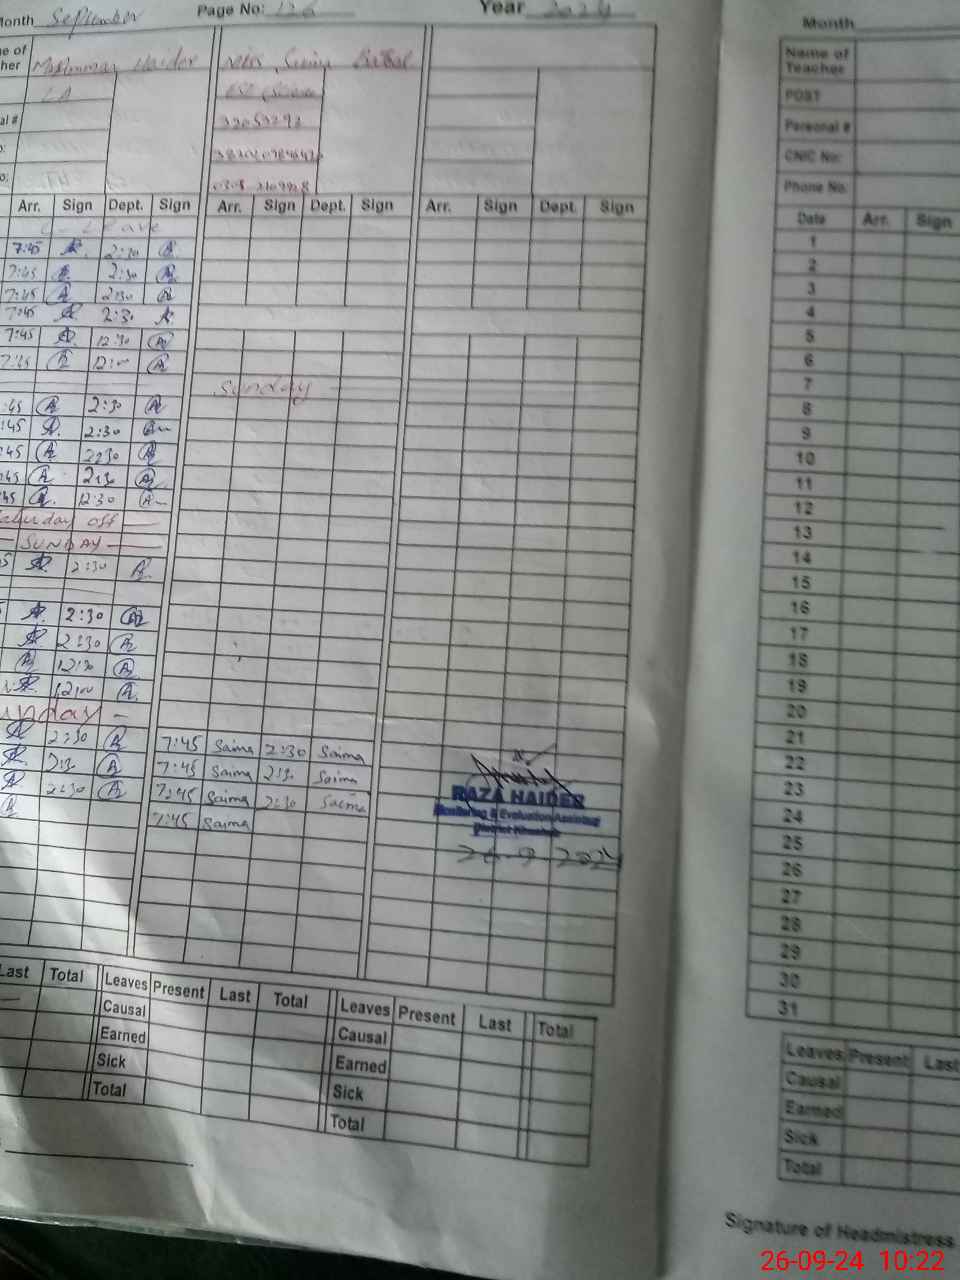 Month September Page No: 126 Year 2024
Haider Miss Saima
LA
32053293
Arr. Sign Dept. Sign Arr. Sign Dept. Sign Arr. Sign Dept. Sign
C-Leave
7:45 A. 2:30 A
7:45 A 2:30 A
7:45 A 2:30 A
7:45 A 2:30 A.
7:45 A 12:30 A
7:45 A 12:00 A
Sunday
:45 A 2:30 A
:45 A. 2:30 A
:45 A 2:30 A
:45 A 2:30 A
:45 A. 12:30 A
Saturday off
SUNDAY
A 2:30 A.
A. 2:30 A
A 2:30 A
A 12:30 A
A. 12:00 A.
Sunday
A 2:30 A 7:45 Saima 2:30 Saima
A. 2:30 A 7:45 Saima 2:30 Saima
A 2:30 A 7:45 Saima 2:30 Saima
A 7:45 Saima
RAZA HAIDER
Monitoring & Evaluation Assistant
District Khushab
26-9-2024
Last Total Leaves Present Last Total Leaves Present Last Total
Causal Causal
Earned Earned
Sick Sick
Total Total
Month
Name of
Teacher
POST
Personal #
CNIC No:
Phone No.
Date Arr. Sign
1
2
3
4
5
6
7
8
9
10
11
12
13
14
15
16
17
18
19
20
21
22
23
24
25
26
27
28
29
30
31
Leaves Present Last
Causal
Earned
Sick
Total
Signature of Headmistress
26-09-24 10:22